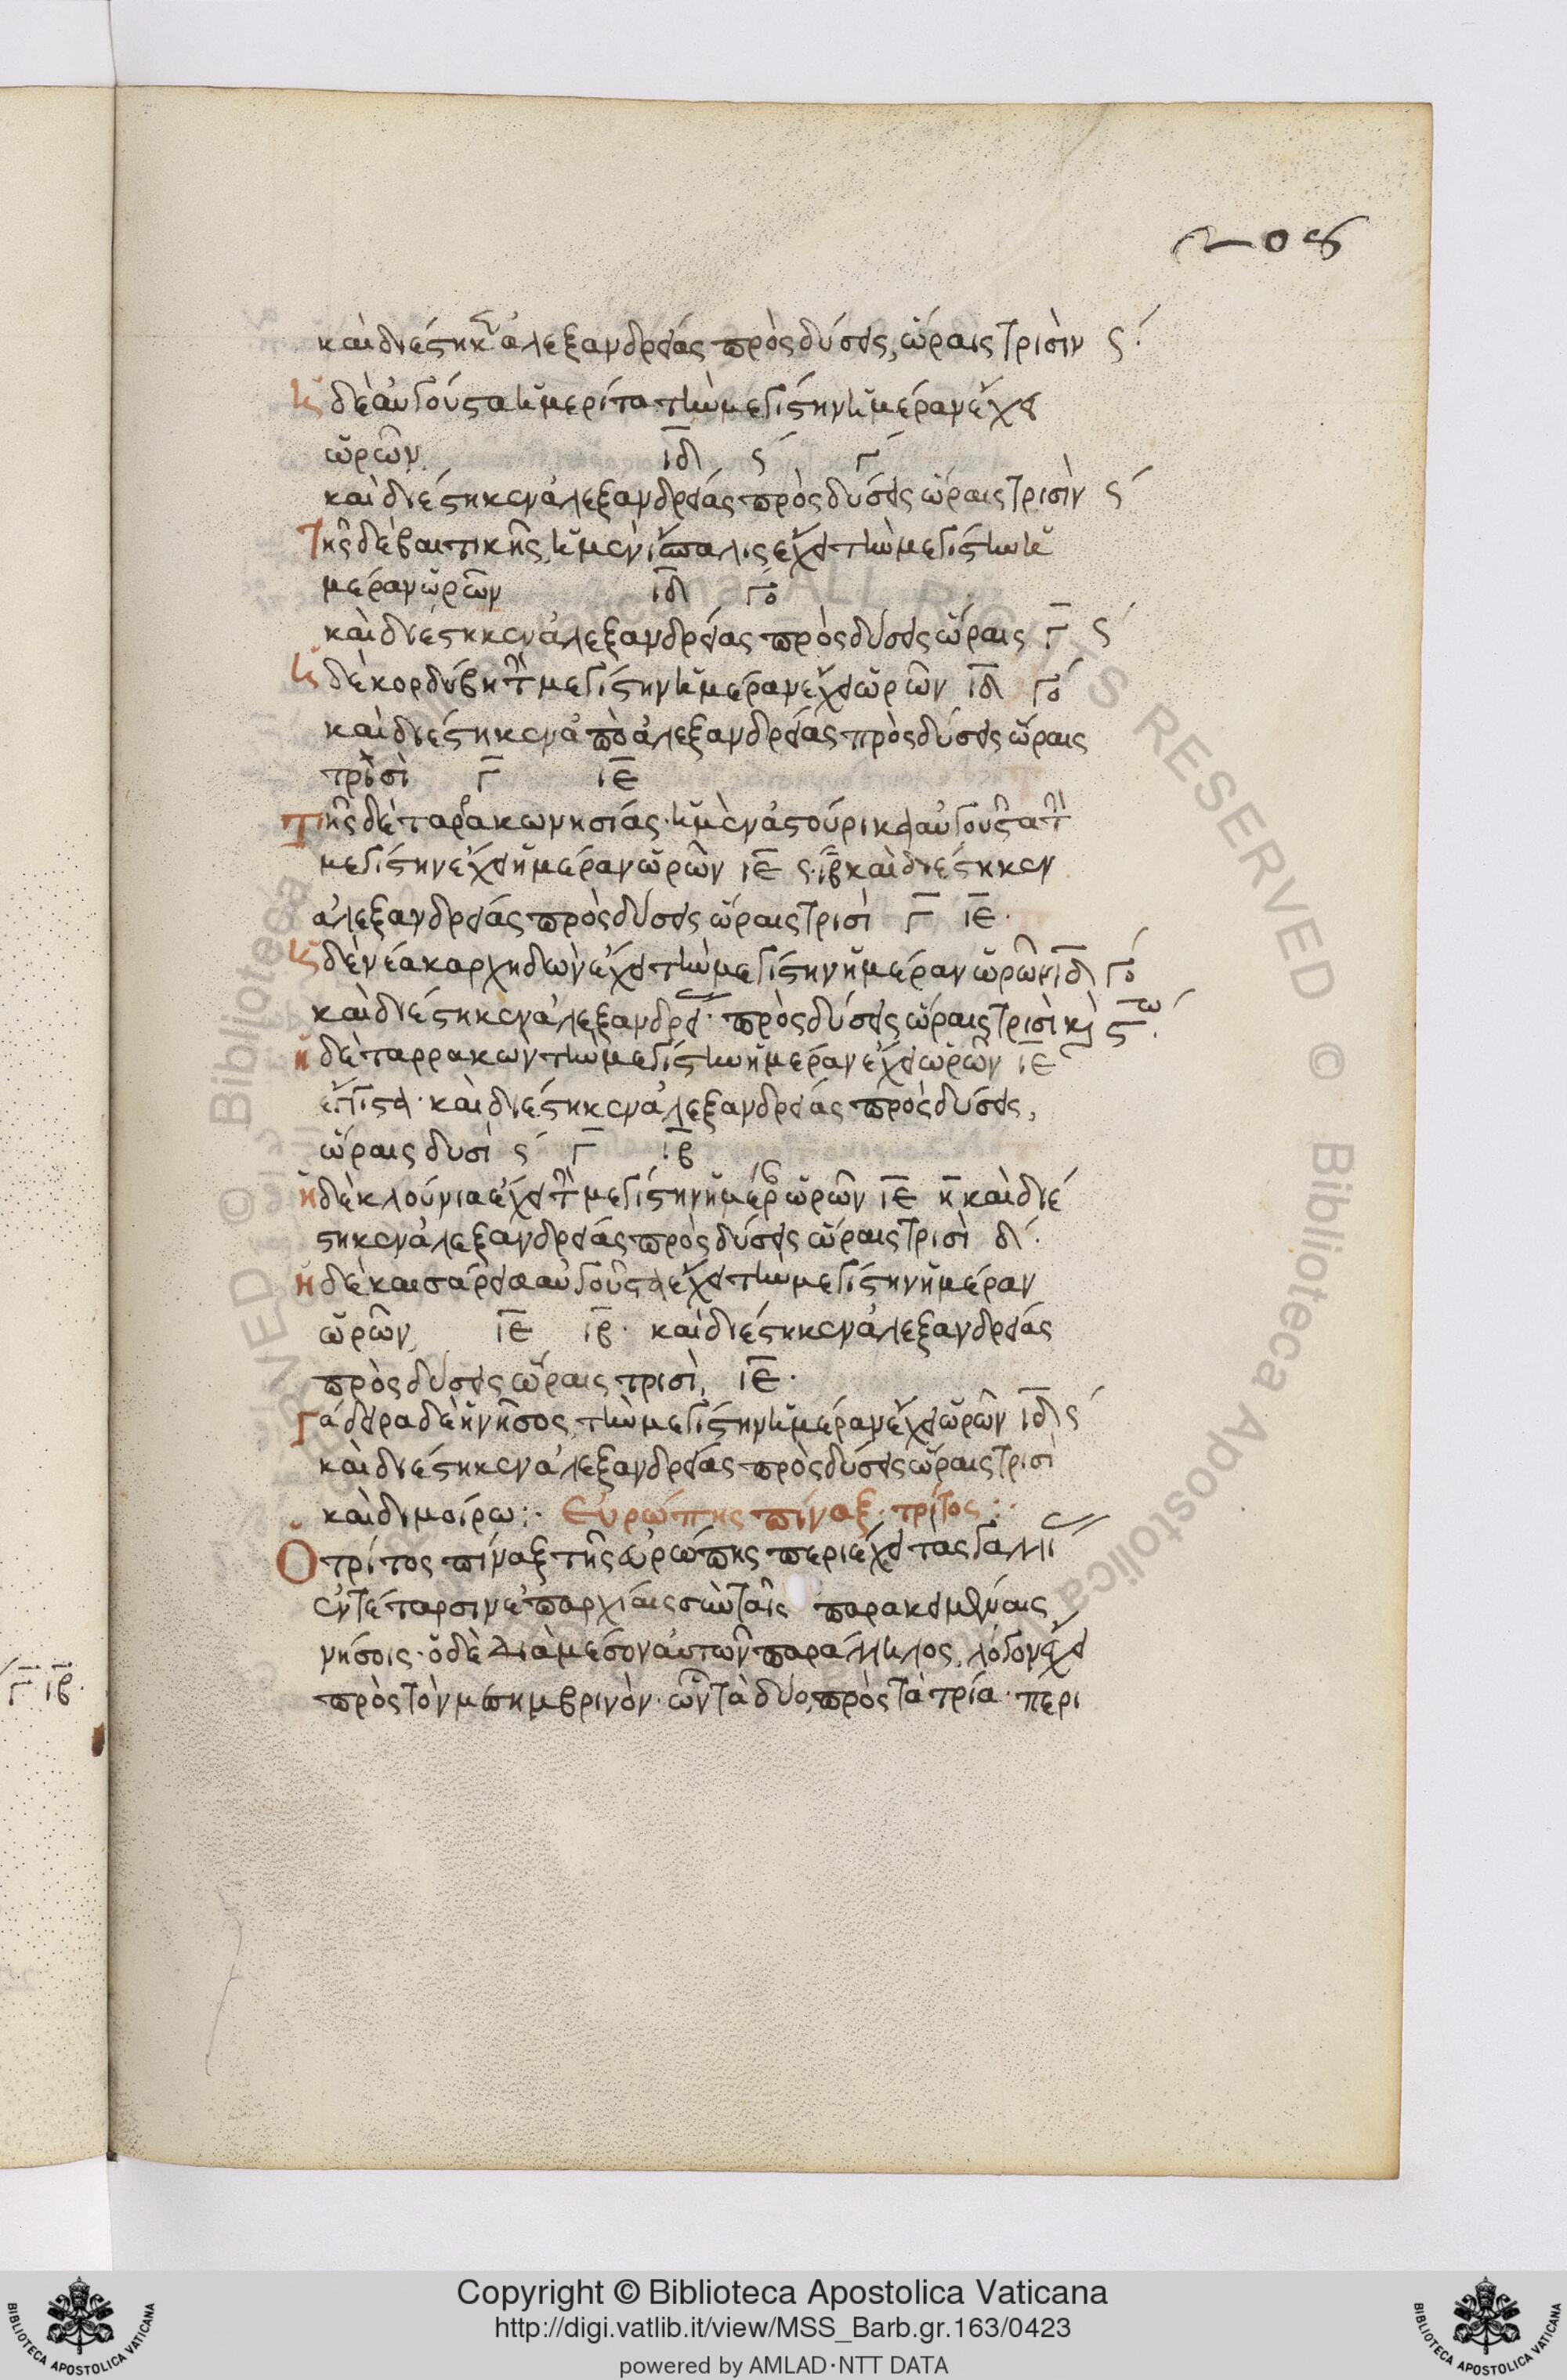 206
καὶ διέστηκεν ἀλεξανδρείας πρὸς δύσεις, ὥραις τρισὶν ς´
ἡ δὲ αὐγούστα ἡμερίτα τὴν μεγίστην ἡμέραν ἔχει
ὡρῶν ιδ ς´ γ´
καὶ διέστηκεν ἀλεξανδρείας πρὸς δύσεις ὥραις τρισὶν ς´
Τῆς δὲ βαιτικῆς, ἡ μὲν ἵσπαλις ἔχει τὴν μεγίστην ἡ
μέραν ὡρῶν ιδ γο´
καὶ διέστηκεν ἀλεξανδρείας πρὸς δύσεις ὥραις γ ς´
ἡ δὲ κορδύβη τὴν μεγίστην ἡμέραν ἔχει ὡρῶν ιδ γο´
καὶ διέστηκεν ἀπὸ ἀλεξανδρείας πρὸς δύσεις ὥραις
τρισὶ γ ιε
Τῆς δὲ ταρακωνησίας· ἡ μὲν ἀστούρικα αὐγούστα τὴν
μεγίστην ἔχει ἡμέραν ὡρῶν ιε ς· ιβ καὶ διέστηκεν
ἀλεξανδρείας πρὸς δύσεις ὥραις τρισὶ γ ιε·
ἡ δὲ νέα καρχηδὼν ἔχει τὴν μεγίστην ἡμέραν ὡρῶν ιδ γο´
καὶ διέστηκεν ἀλεξανδρείας· πρὸς δύσεις ὥραις τρισὶ καὶ
ἡ δὲ ταρρακὼν τὴν μεγίστην ἡμέραν ἔχει ὡρῶν ιε
καὶ διέστηκεν ἀλεξανδρείας πρὸς δύσεις,
ὥραις δυσὶ ς´ γ ιβ
ἡ δὲ κλούνια ἔχει τὴν μεγίστην ἡμέραν ὡρῶν ιε η καὶ διέ
στηκεν ἀλεξανδρείας πρὸς δύσεις ὥραις τρισὶ δ´·
ἡ δὲ καισάρεια αὐγούστα ἔχει τὴν μεγίστην ἡμέραν
ὡρῶν, ιε ιβ· καὶ διέστηκεν ἀλεξανδρείας
πρὸς δύσεις ὥραις τρισὶ, ιε·
Γάδειρα δὲ ἡ νῆσος, τὴν μεγίστην ἡμέραν ἔχει ὡρῶν ιδ ς´
καὶ διέστηκεν ἀλεξανδρείας πρὸς δύσεις ὥραις τρισὶ
καὶ διμοίρω:· Εὐρώπης πίναξ· τρίτος:·
Ὁ τρίτος πίναξ τῆς εὐρώπης περιέχει τὰς γαλλί
ἐν τέταρσιν ἐπαρχίαις σὺν ταῖς παρακειμέναις
νήσοις· ὁ δὲ διὰ μέσον αὐτῶν παράλληλος, λόγον ἔχει
πρὸς τὸν μεσημβρινὸν· ὧν τὰ δύο, πρὸς τὰ τρία· περι
γ ιβ·
Copyright © Biblioteca Apostolica Vaticana
http://digi.vatlib.it/view/MSS_Barb.gr.163/0423
powered by AMLAD·NTT DATA